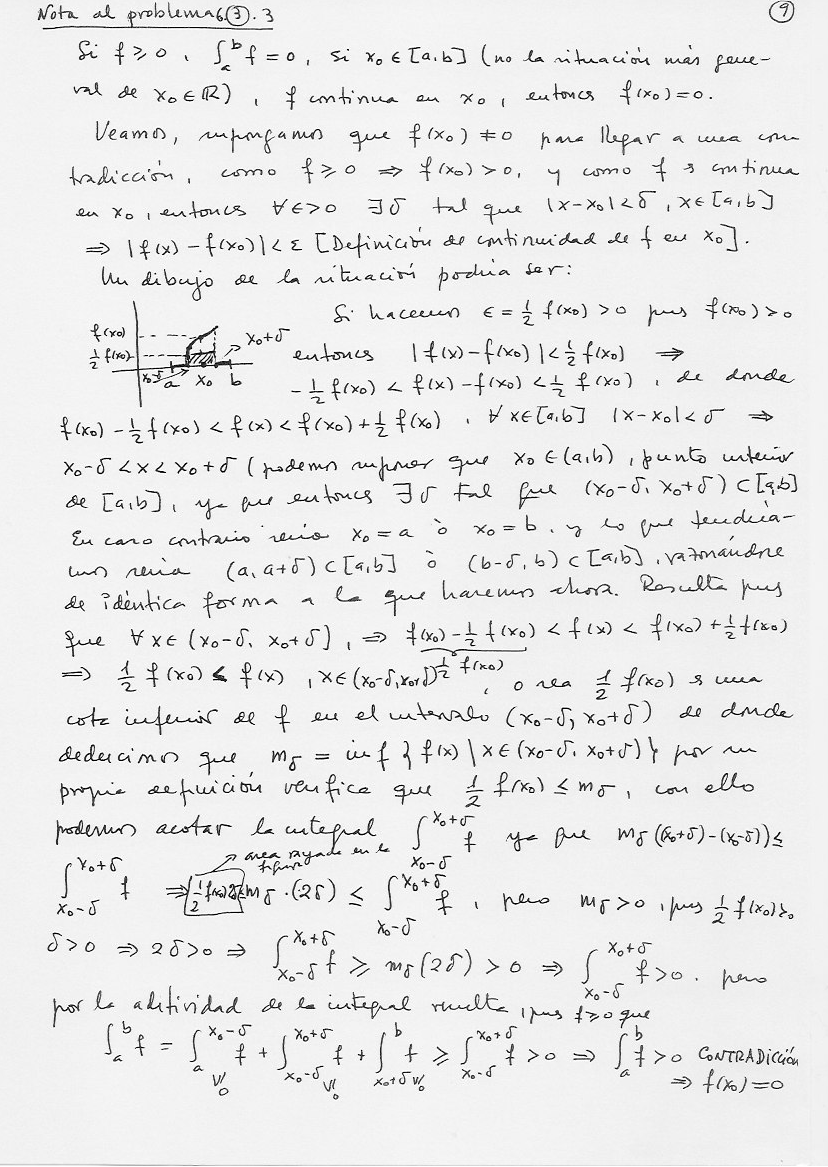 Nota al problema 6.③.3 ⑨
Si f ≥ 0, ∫_a^b f = 0, si x₀ ∈ [a,b] (no la situación más gene-
ral de x₀ ∈ ℝ), f continua en x₀, entonces f(x₀) = 0.
Veamos, supongamos que f(x₀) ≠ 0 para llegar a una con
tradicción, como f ≥ 0 ⇒ f(x₀) > 0, y como f es continua
en x₀, entonces ∀ε>0 ∃δ tal que |x-x₀|<δ, x∈[a,b]
⇒ |f(x) - f(x₀)| < ε [Definición de continuidad de f en x₀].
Un dibujo de la situación podría ser:
f(x₀)
½ f(x₀)
x₀-δ
a x₀ b
x₀+δ
Si hacemos ε = ½ f(x₀) > 0 pues f(x₀) > 0
entonces |f(x) - f(x₀)| < ½ f(x₀) ⇒
-½ f(x₀) < f(x) - f(x₀) < ½ f(x₀), de donde
f(x₀) - ½ f(x₀) < f(x) < f(x₀) + ½ f(x₀), ∀ x∈[a,b] |x-x₀| < δ ⇒
x₀-δ < x < x₀+δ (podemos suponer que x₀ ∈ (a,b), punto interior
de [a,b], ya que entonces ∃δ tal que (x₀-δ, x₀+δ) ⊂ [a,b]
En caso contrario sería x₀ = a ò x₀ = b, y lo que tendría-
mos sería (a, a+δ) ⊂ [a,b] ò (b-δ, b) ⊂ [a,b], razonándose
de idéntica forma a la que haremos ahora. Resulta pues
que ∀ x ∈ (x₀-δ, x₀+δ), ⇒ f(x₀) - ½ f(x₀) < f(x) < f(x₀) + ½ f(x₀)
½ f(x₀)
⇒ ½ f(x₀) ≤ f(x), x∈(x₀-δ, x₀+δ), o sea ½ f(x₀) es una
cota inferior de f en el intervalo (x₀-δ, x₀+δ) de donde
deducimos que m_δ = inf { f(x) \ x ∈ (x₀-δ, x₀+δ) } por su
propia definición verifica que ½ f(x₀) ≤ m_δ, con ello
podemos acotar la integral ∫_{x₀-δ}^{x₀+δ} f ya que m_δ((x₀+δ)-(x₀-δ)) ≤
area rayada en la figura
∫_{x₀-δ}^{x₀+δ} f ⇒ ½ f(x₀) 2δ ≤ m_δ · (2δ) ≤ ∫_{x₀-δ}^{x₀+δ} f, pero m_δ > 0, pues ½ f(x₀) > 0
δ > 0 ⇒ 2δ > 0 ⇒ ∫_{x₀-δ}^{x₀+δ} f ≥ m_δ(2δ) > 0 ⇒ ∫_{x₀-δ}^{x₀+δ} f > 0. pero
por la aditividad de la integral resulta, pues f ≥ 0 que
∫_a^b f = ∫_a^{x₀-δ} f + ∫_{x₀-δ}^{x₀+δ} f + ∫_{x₀+δ}^b f ≥ ∫_{x₀-δ}^{x₀+δ} f > 0 ⇒ ∫_a^b f > 0 CONTRADICCIÓN
V/ 0 V/ 0 V/ 0 ⇒ f(x₀) = 0